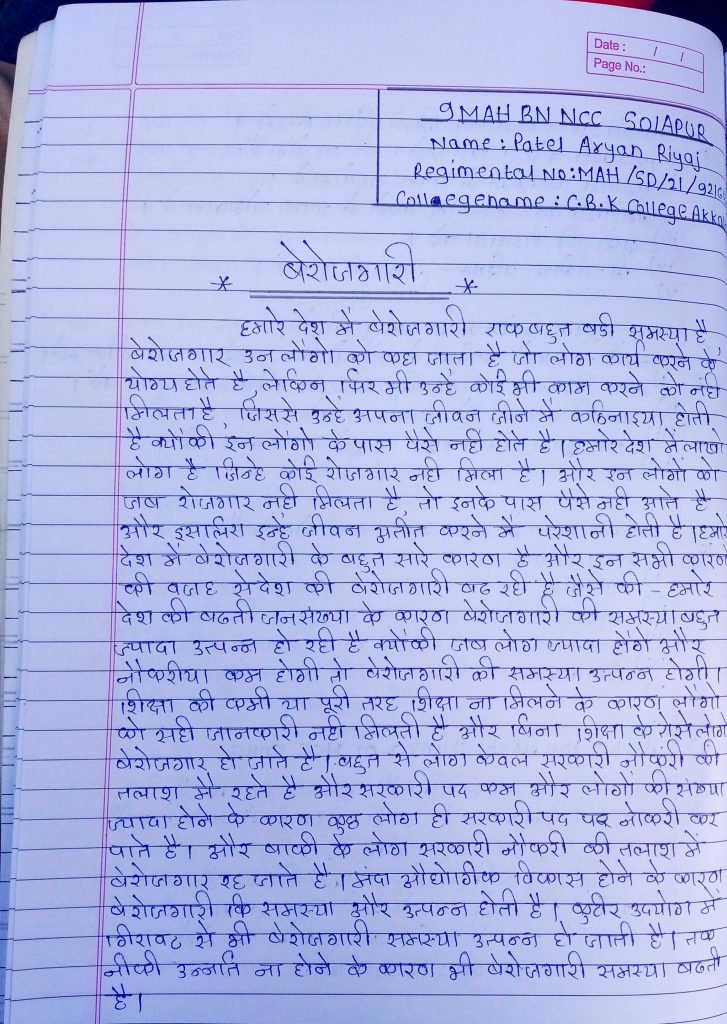 Date : / /
Page No.:
9 MAH BN NCC SOLAPUR
Name : Patel Aryan Riyaj
Regimental No: MAH /SD/21/921
Collegename : C.B.K College
बेरोजगारी
हमारे देश मे बेरोजगारी एक बहुत बडी समस्या है
बेरोजगार उन लोगो को कहा जाता है जो लोग कार्य करने के
योग्य होते है, लेकिन फिर भी उन्हे कोई भी काम करने को नही
मिलता है, जिससे उन्हे अपना जीवन जीने मे कठिनाइया होती
है क्योंकी इन लोगो के पास पैसे नही होते है। हमारे देश में लाखो
लोग है जिन्हे कोई रोजगार नही मिला है। और इन लोगो को
जब रोजगार नही मिलता है, तो इनके पास पैसे नही आते है
और इसलिए इन्हे जीवन व्यतीत करने मे परेशानी होती है। हमारे
देश में बेरोजगारी के बहुत सारे कारण है और इन सभी कारण
की वजह से देश की बेरोजगारी बढ रही है जैसे की - हमारे
देश की बढती जनसंख्या के कारण बेरोजगारी की समस्या बहुत
ज्यादा उत्पन्न हो रही है क्योंकी जब लोग ज्यादा होंगे और
नौकरीया कम होगी तो बेरोजगारी की समस्या उत्पन्न होगी।
शिक्षा की कमी या पूरी तरह शिक्षा ना मिलने के कारण लोगो
को सही जानकारी नही मिलती है और बिना शिक्षा के ऐसे लोग
बेरोजगार हो जाते है। बहुत से लोग केवल सरकारी नौकरी की
तलाश मे रहते है और सरकारी पद कम और लोगो की संख्या
ज्यादा होने के कारण कुछ लोग ही सरकारी पद पर नौकरी कर
पाते है। और बाकी के लोग सरकारी नौकरी की तलाश में
बेरोजगार रह जाते है। मंदा औद्योगीक विकास होने के कारण
बेरोजगारी कि समस्या और उत्पन्न होती है। कुटीर उदयोग में
गिरावट से भी बेरोजगारी समस्या उत्पन्न हो जाती है। तक
नीकी उन्नति ना होने के कारण भी बेरोजगारी समस्या बढती
है।